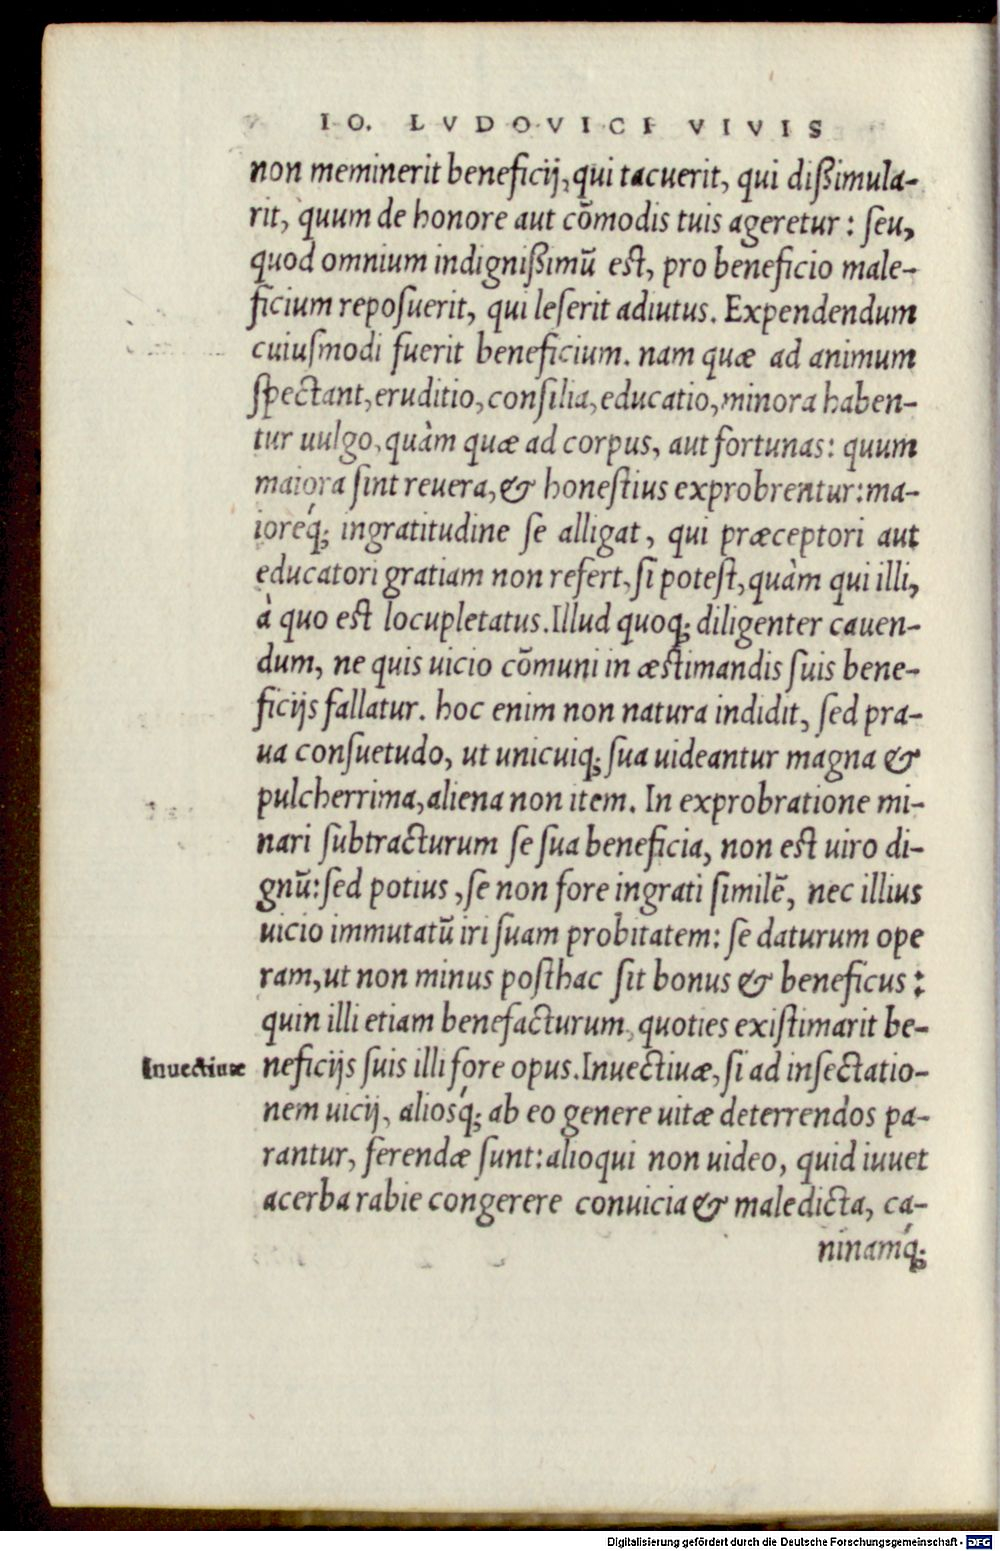 IO. LVDOVICI VIVIS
non meminerit beneficij, qui tacuerit, qui dißimula-
rit, quum de honore aut cōmodis tuis ageretur: ſeu,
quod omnium indignißimū est, pro beneficio male-
ficium repoſuerit, qui leſerit adiutus. Expendendum
cuiuſmodi fuerit beneficium. nam quæ ad animum
ſpectant, eruditio, conſilia, educatio, minora haben-
tur uulgo, quàm quæ ad corpus, aut fortunas: quum
maiora ſint reuera, & honeſtius exprobrentur: ma-
ioreq́; ingratitudine ſe alligat, qui præceptori aut
educatori gratiam non refert, ſi poteſt, quàm qui illi,
à quo eſt locupletatus. Illud quoq; diligenter cauen-
dum, ne quis uicio cōmuni in æſtimandis ſuis bene-
ficijs fallatur. hoc enim non natura indidit, ſed pra-
ua conſuetudo, ut unicuiq; ſua uideantur magna &
pulcherrima, aliena non item. In exprobratione mi-
nari ſubtracturum ſe ſua beneficia, non eſt uiro di-
gnū: ſed potius, ſe non fore ingrati ſimilē, nec illius
uicio immutatū iri ſuam probitatem: ſe daturum ope
ram, ut non minus poſthac ſit bonus & beneficus:
quin illi etiam benefacturum, quoties exiſtimarit be-
Inuectiuæ neficijs ſuis illi fore opus. Inuectiuæ, ſi ad inſectatio-
nem uicij, aliosq́; ab eo genere uitæ deterrendos pa-
rantur, ferendæ ſunt: alioqui non uideo, quid iuuet
acerba rabie congerere conuicia & maledicta, ca-
ninamq́;
Digitalisierung gefördert durch die Deutsche Forschungsgemeinschaft - DFG